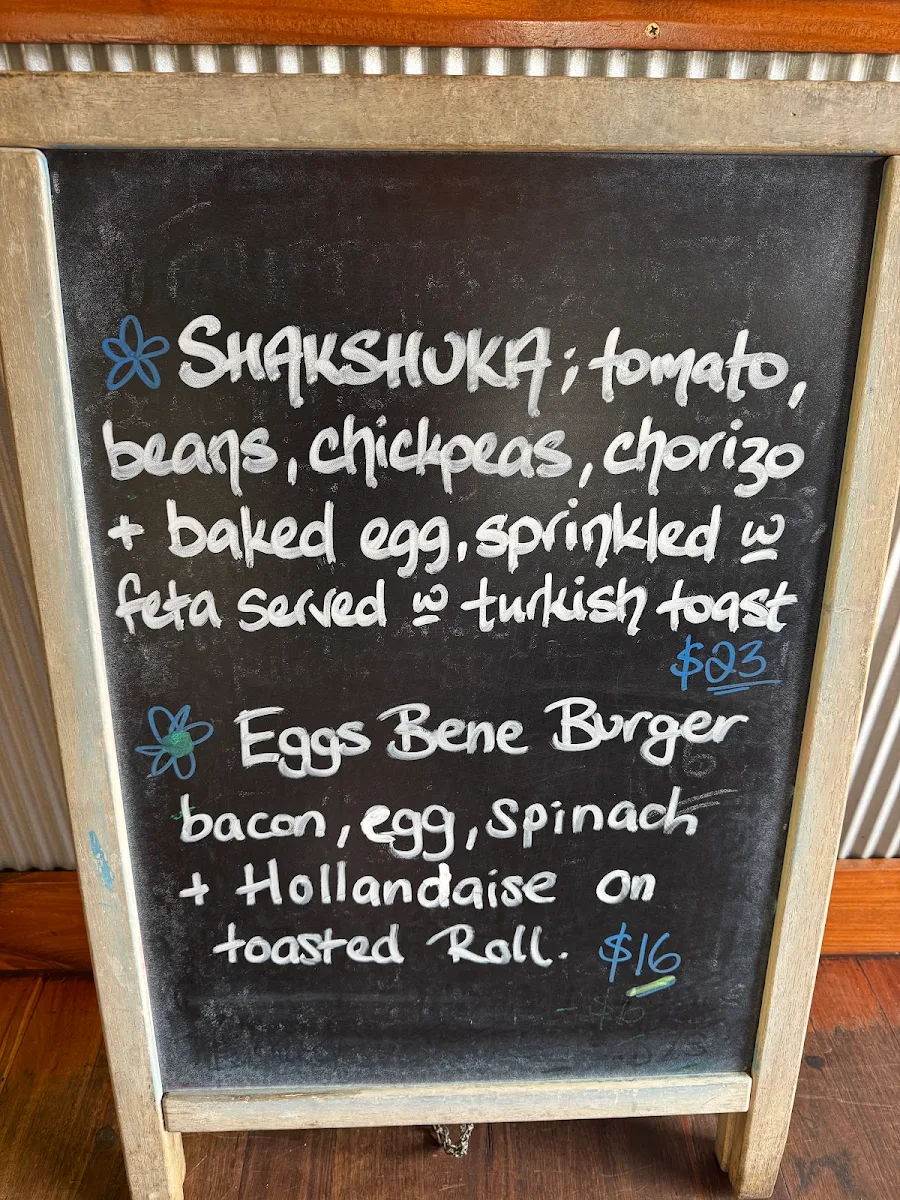 SHAKSHUKA; tomato,
beans, chickpeas, chorizo
+ baked egg, sprinkled w
feta served w turkish toast
$23
Eggs Bene Burger
bacon, egg, spinach
+ Hollandaise on
toasted Roll. $16